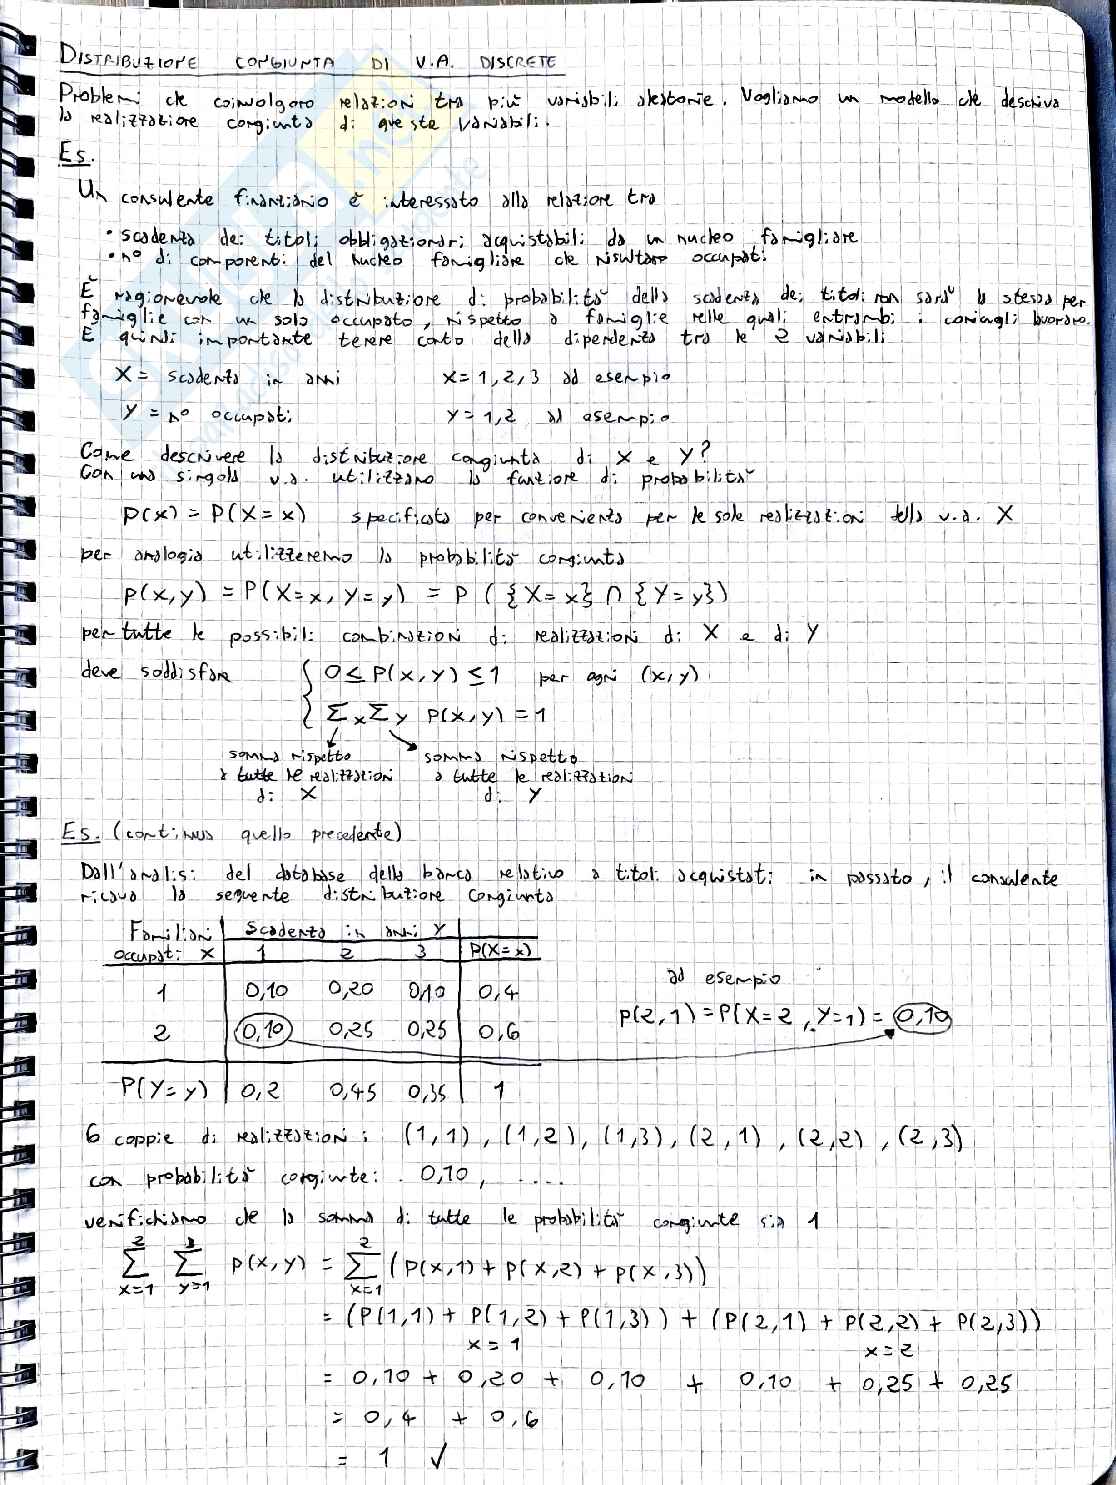 DISTRIBUZIONE CONGIUNTA DI V.A. DISCRETE
Problemi che coinvolgono relazioni tra più variabili aleatorie. Vogliamo un modello che descriva
la realizzazione congiunta di queste variabili.
Es.
Un consulente finanziario è interessato alla relazione tra
• scadenza dei titoli obbligazionari acquistabili da un nucleo famigliare
• n° di componenti del nucleo famigliare che risultano occupati
È ragionevole che la distribuzione di probabilità della scadenza dei titoli non sarà la stessa per
famiglie con un solo occupato, rispetto a famiglie nelle quali entrambi i coniugi lavorano.
È quindi importante tenere conto della dipendenza tra le 2 variabili
X = scadenza in anni x = 1, 2, 3 ad esempio
Y = n° occupati y = 1, 2 ad esempio
Come descrivere la distribuzione congiunta di X e Y?
Con una singola v.a. utilizzano la funzione di probabilità
p(x) = P(X = x) specificata per convenienza per le sole realizzazioni della v.a. X
per analogia utilizzeremo la probabilità congiunta
p(x,y) = P(X=x, Y=y) = P ({X=x} ∩ {Y=y})
per tutte le possibili combinazioni di realizzazioni di X e di Y
deve soddisfare { 0 ≤ P(x,y) ≤ 1 per ogni (x,y)
Σx Σy P(x,y) = 1
somma rispetto somma rispetto
a tutte le realizzazioni a tutte le realizzazioni
di X di Y
Es. (continua quello precedente)
Dall'analisi del database della banca relativo a titoli acquistati in passato, il consulente
ricava la seguente distribuzione congiunta
Familiari Scadenza in anni Y
occupati X 1 2 3 P(X=x)
1 0,10 0,20 0,10 0,4
ad esempio
2 0,10 0,25 0,25 0,6
p(2,1) = P(X=2, Y=1) = 0,10
P(Y=y) 0,2 0,45 0,35 1
6 coppie di realizzazioni: (1,1), (1,2), (1,3), (2,1), (2,2), (2,3)
con probabilità congiunte: 0,10, ....
verifichiamo che la somma di tutte le probabilità congiunte sia 1
2 3 2
Σ Σ p(x,y) = Σ (p(x,1) + p(x,2) + p(x,3))
x=1 y=1 x=1
= (P(1,1) + P(1,2) + P(1,3)) + (P(2,1) + P(2,2) + P(2,3))
x = 1 x = 2
= 0,10 + 0,20 + 0,10 + 0,10 + 0,25 + 0,25
= 0,4 + 0,6
= 1 ✓